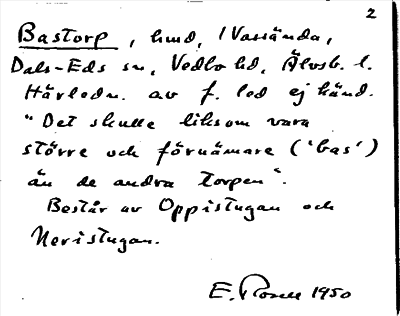 2
Bastorp, hmd, i Vassända,
Dals-Eds sn, Vedbo hd, Älvsb. l.
Härledn. av f. led ej känd.
"Det skulle liksom vara
större och förnämare ('bas')
än de andra torpen".
Består av Oppistugan och
Neristugan.
E. Rosell 1950